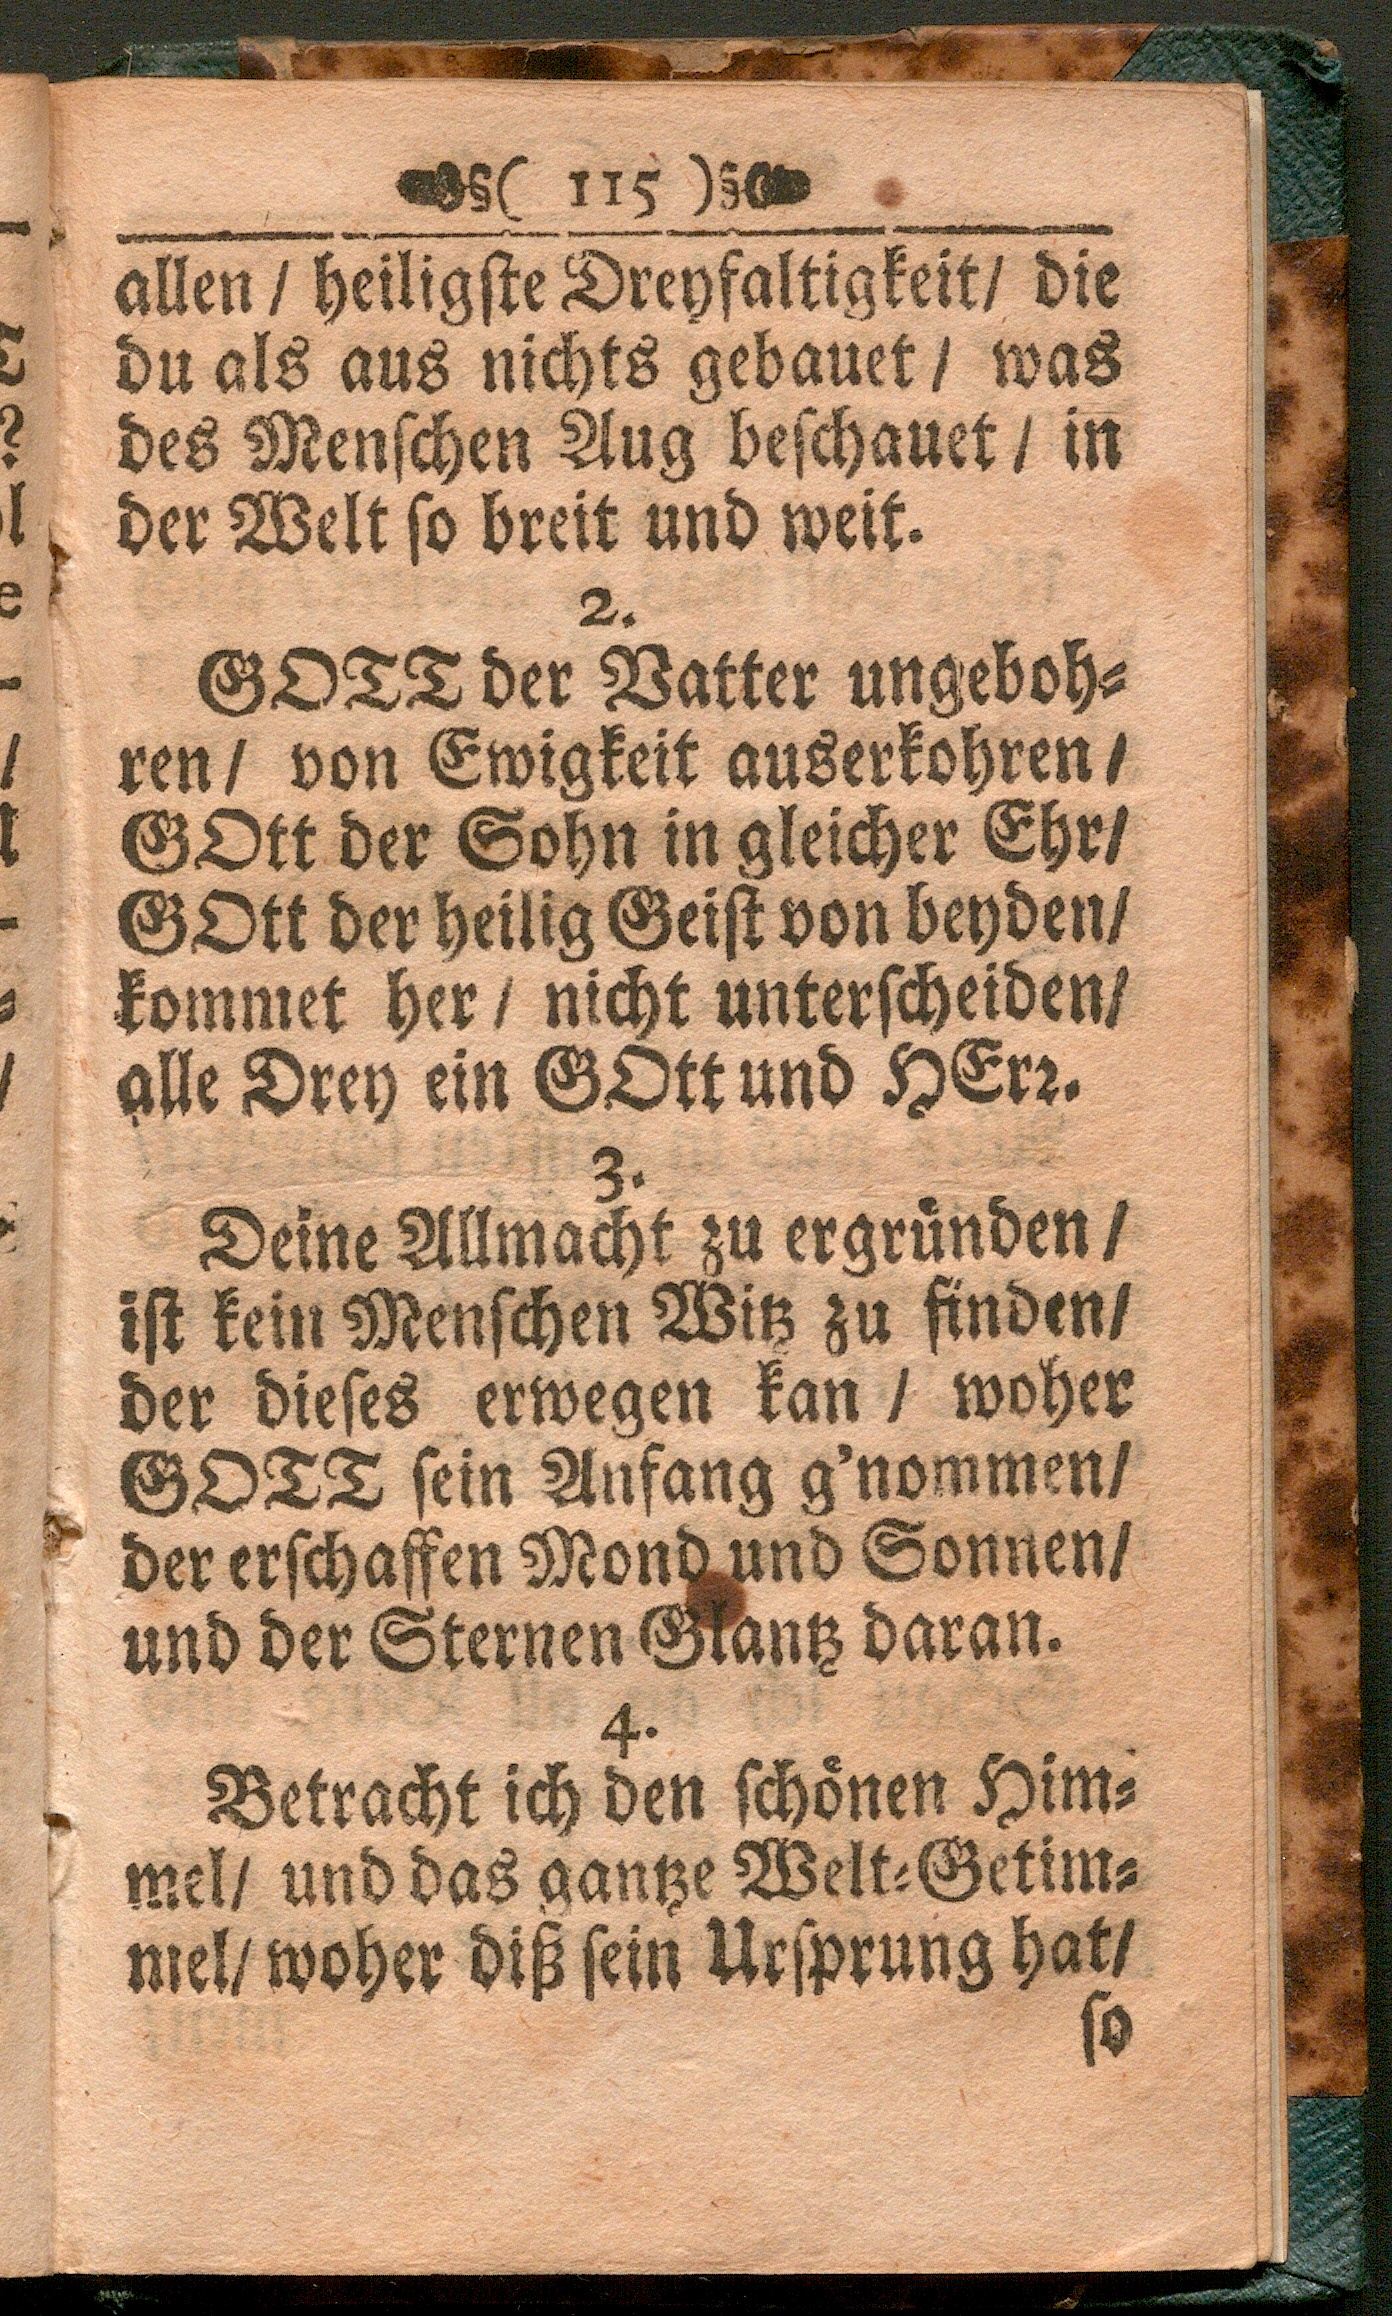 §( 115 )§
allen / heiligſte Dreyfaltigkeit / die
du als aus nichts gebauet / was
des Menſchen Aug beſchauet / in
der Welt ſo breit und weit.
2.
GOTT der Vatter ungeboh⸗
ren / von Ewigkeit auserkohren /
GOtt der Sohn in gleicher Ehr /
GOtt der heilig Geiſt von beyden /
kommet her / nicht unterſcheiden /
alle Drey ein GOtt und HErꝛ.
3.
Deine Allmacht zu ergründen /
iſt kein Menſchen Witz zu finden /
der dieſes erwegen kan / woher
GOTT ſein Anfang g'nommen /
der erſchaffen Mond und Sonnen /
und der Sternen Glantz daran.
4.
Betracht ich den ſchönen Him⸗
mel / und das gantze Welt⸗Getim⸗
mel / woher diß ſein Urſprung hat /
ſo